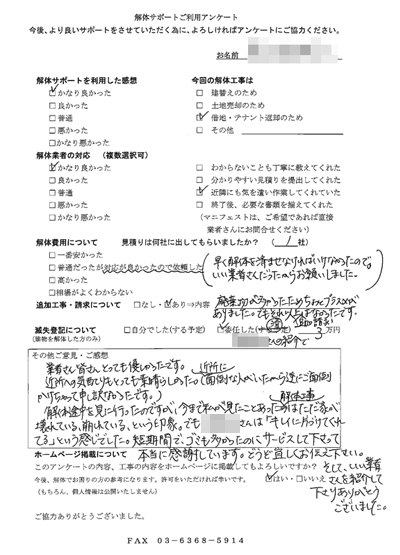 解体サポートご利用アンケート
今後、より良いサポートをさせていただく為に、よろしければアンケートにご協力ください。
お名前
解体サポートを利用した感想
☑かなり良かった
□良かった
□普通
□悪かった
□かなり悪かった
今回の解体工事は
□ 建替えのため
□ 土地売却のため
☑ 借地・テナント返却のため
□ その他
解体業者の対応 (複数選択可)
☑かなり良かった
□良かった
□普通
□悪かった
□かなり悪かった
□ わからないことも丁寧に教えてくれた
□ 分かりやすい見積りを提出してくれた
☑ 近隣にも気を遣い作業してくれていた
□ 終了後、必要な書類を揃えてくれた
(マニフェストは、ご希望であれば直接
業者さんにお問合せください)
解体費用について 見積りは何社に出してもらいましたか? ( 1 社)
□一番安かった
□普通だったが対応が良かったので依頼した
□高かった
□相場がよくわからない
早く解体を済ませなければいけなかったので。
いい業者さんだったからお願いしました。
追加工事・請求について □なし・☑あり⇒内容
ありました。でもそれ以上はなかったです。
滅失登記について
(建物を解体した方のみ)
□自分でした(する予定)
3万円
さんの紹介で
その他ご意見・ご感想
業者さん皆さんとっても優しかったです。近所に
近所への気配りもとっても素晴らしかった(面倒な人がいたから逆にご面倒
かけちゃって申し訳なかったです。)
解体途中を見に行ったのですが、今まで私が見たことあったのは「ただ家が
解体工事
壊れている、崩れている、という印象。でも
さんは「キレイに片づけてくれ
てる」という感じでした。短期間で、ゴミも多かったのにサービスして下さって
本当に感謝しています。どうぞ宜しくお伝え下さい。
ホームページ掲載について
このアンケートの内容、工事の内容をホームページに掲載してもよろしいですか?
今後、解体でお困りの方の参考になります。許可をいただければ幸いです。
☑はい・□いいえ
(もちろん、個人情報は公開いたしません)
そして、いい業者
さんを紹介して
下さりありがとう
ございました。
ご協力ありがとうございました。
FAX 03-6368-5914